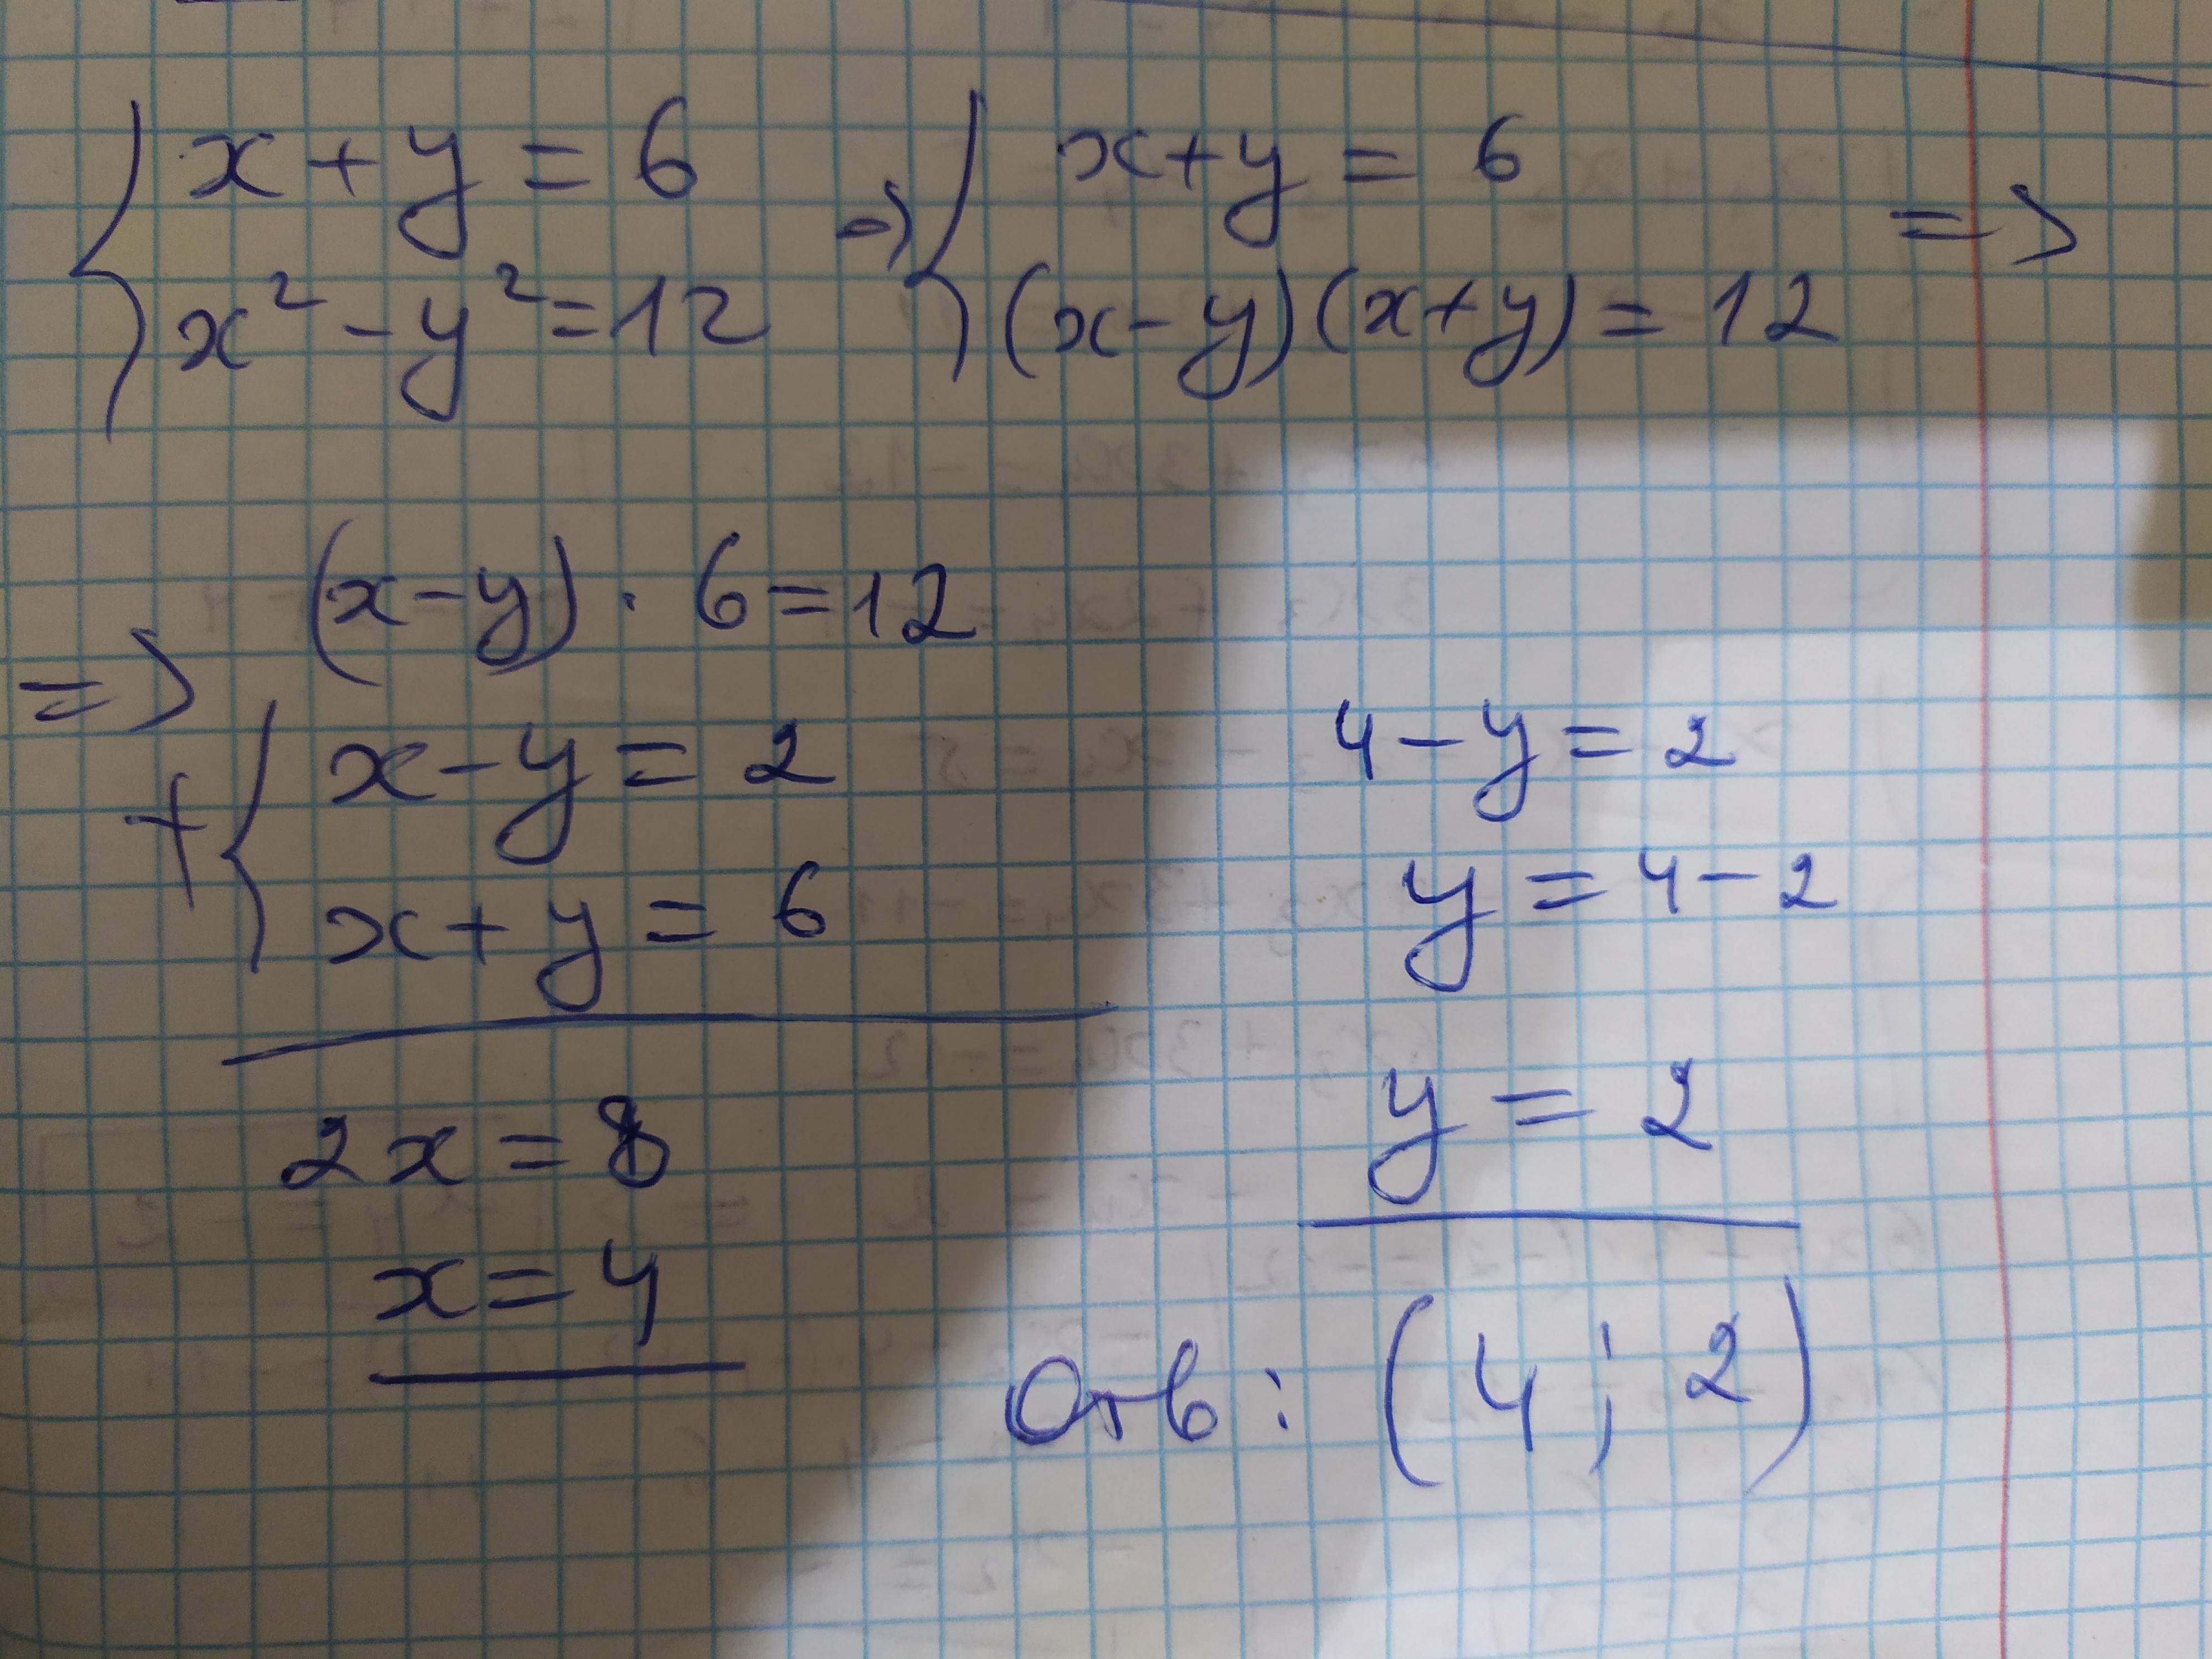 { x + y = 6 => { x + y = 6 =>
x² - y² = 12 (x - y)(x + y) = 12
=> (x - y) · 6 = 12
+ { x - y = 2
x + y = 6
2x = 8
x = 4
4 - y = 2
y = 4 - 2
y = 2
Отв: (4; 2)